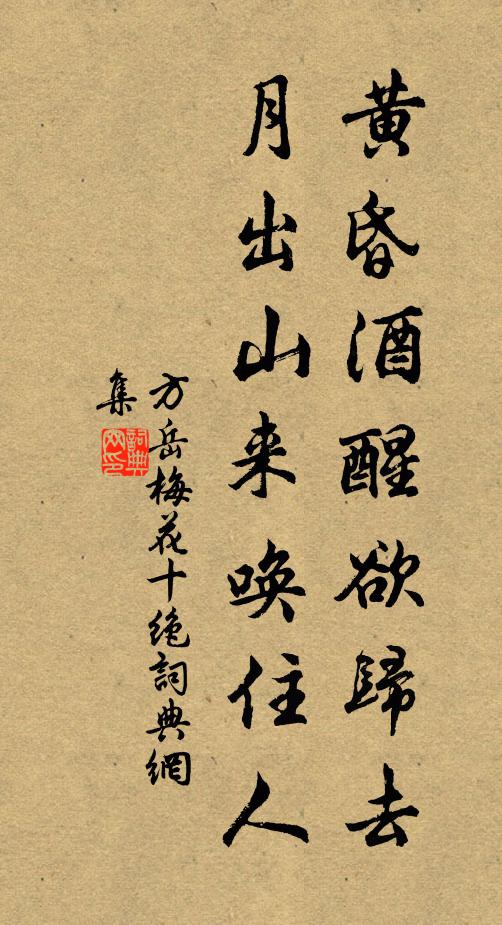 黄昏酒醒欲歸去
月出山来唤住人
方岳梅花十绝詞典網
集
詞典
网印